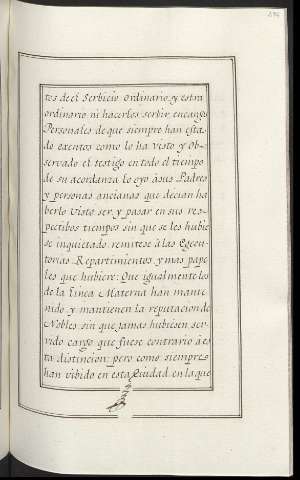 tos de el Serbicio ordinario, y extra
ordinario ni hacerles serbir encargos
Personales de que siempre han esta
do exentos como lo ha visto y Ob-
servado el testigo en todo el tiempo
de su acordanza lo oyo à sus Padres
y personas ancianas que decian ha
berlo visto ser, y pasar en sus res-
pectibos tiempos sin que se les hubie
se inquietado remitese à las Egecu-
torias Repartimientos y mas pape
les que hubiere: Que igualmente los
de la Linea Materna han mante
nido y mantienen la reputacion de
Nobles sin que jamas hubiesen ser-
vido cargo que fuese contrario à es
ta distincion; pero como siempre
han vibido en esta Ciudad, en la que